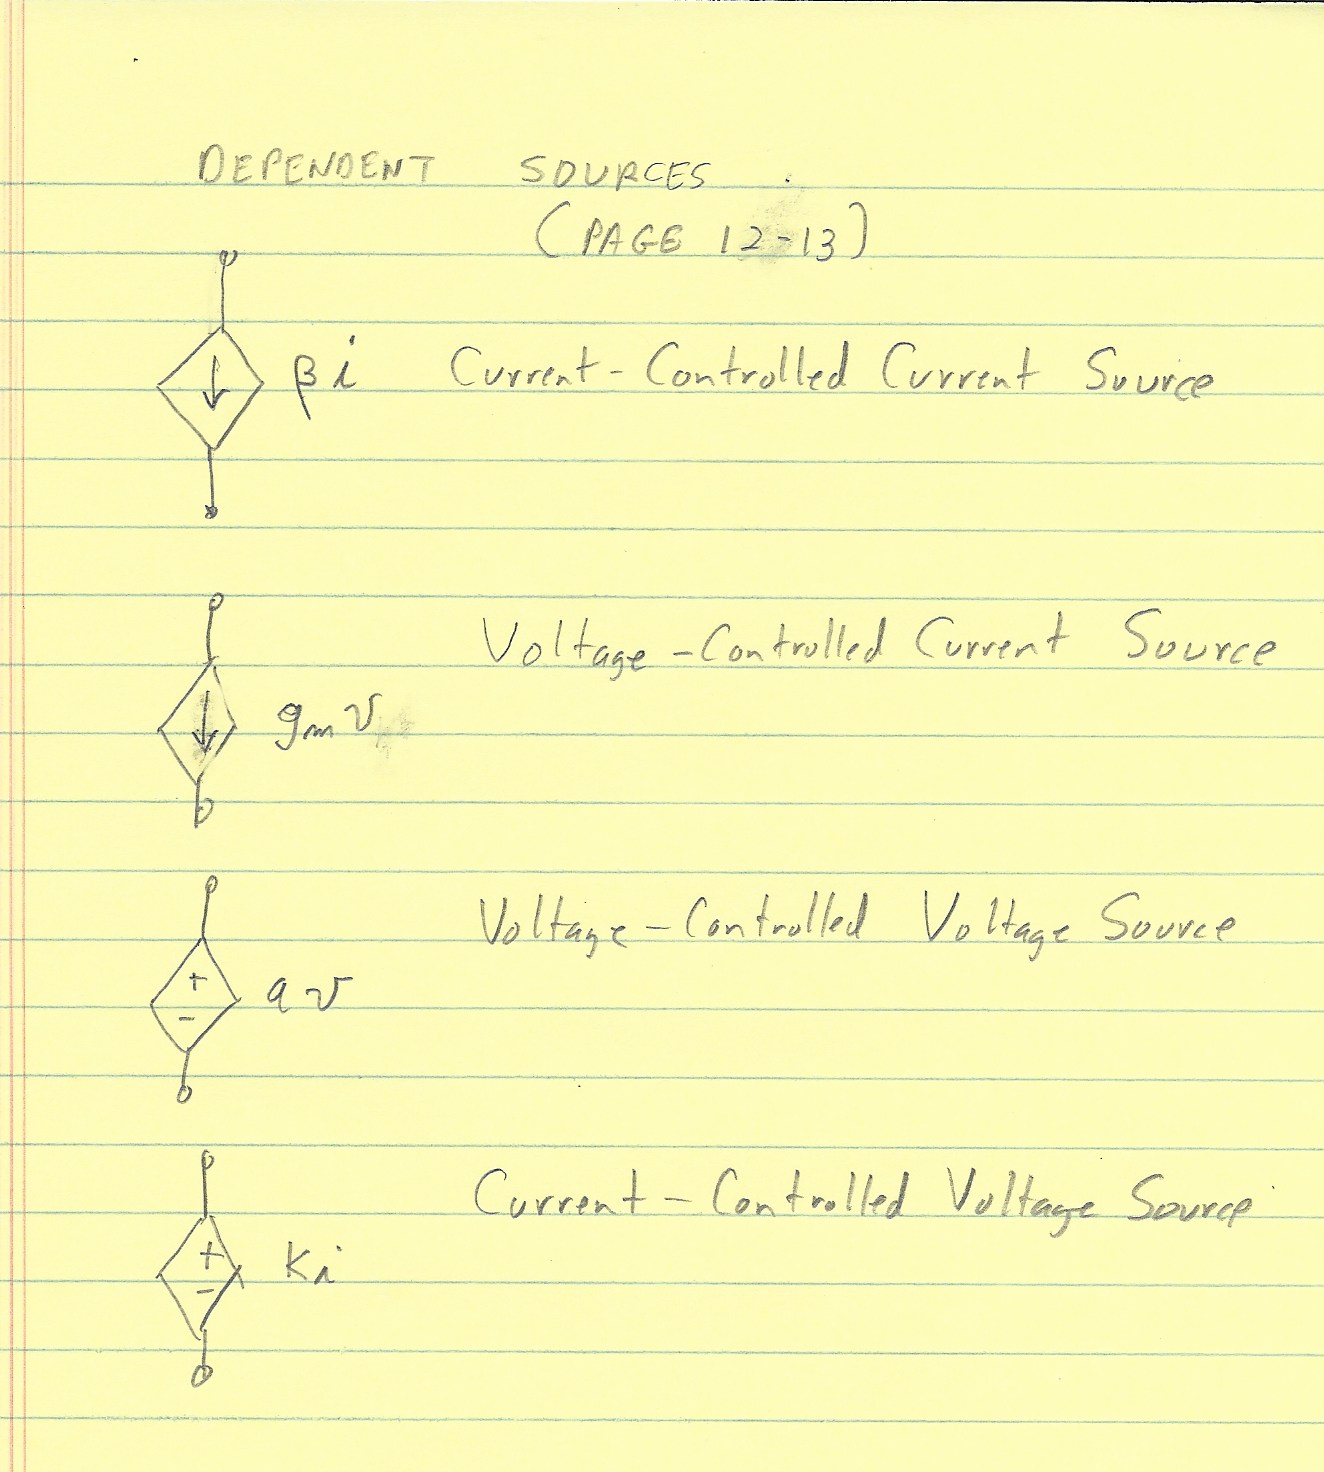 DEPENDENT SOURCES
(PAGE 12-13)
βi Current-Controlled Current Source
Voltage-Controlled Current Source
gmv
Voltage-Controlled Voltage Source
+
- av
Current-Controlled Voltage Source
+
- Ki